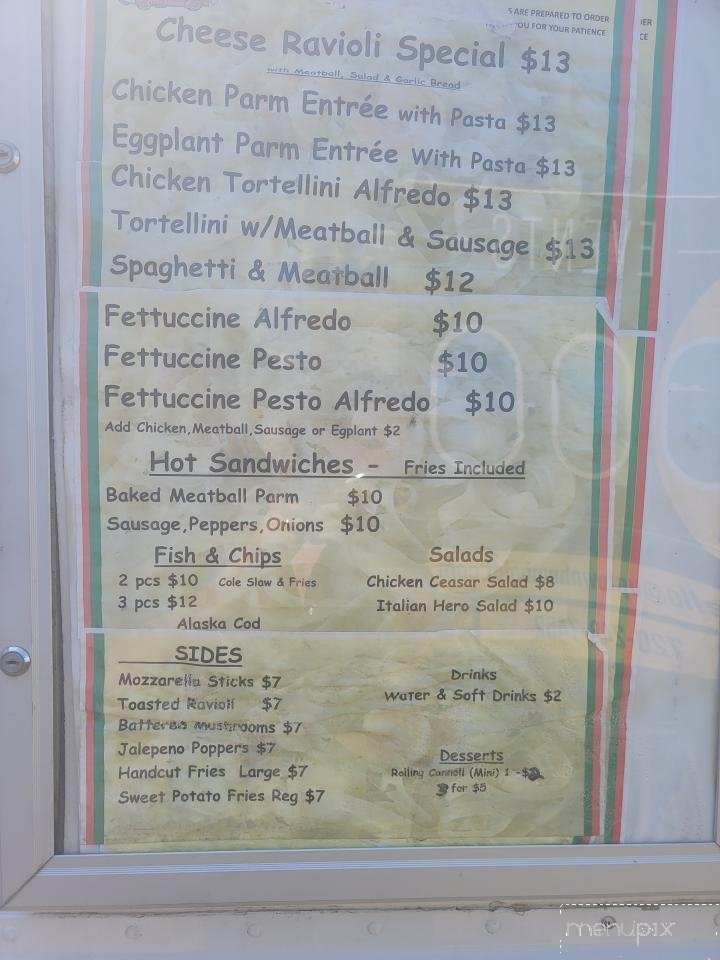 S ARE PREPARED TO ORDER
OU FOR YOUR PATIENCE
Cheese Ravioli Special $13
with Meatball, Salad & Garlic Bread
Chicken Parm Entrée with Pasta $13
Eggplant Parm Entrée With Pasta $13
Chicken Tortellini Alfredo $13
Tortellini w/Meatball & Sausage $13
Spaghetti & Meatball $12
Fettuccine Alfredo $10
Fettuccine Pesto $10
Fettuccine Pesto Alfredo $10
Add Chicken,Meatball,Sausage or Egplant $2
Hot Sandwiches - Fries Included
Baked Meatball Parm $10
Sausage,Peppers,Onions $10
Fish & Chips
2 pcs $10 Cole Slaw & Fries
3 pcs $12
Alaska Cod
Salads
Chicken Ceasar Salad $8
Italian Hero Salad $10
SIDES
Mozzarella Sticks $7
Toasted Ravioli $7
Battered Mushrooms $7
Jalepeno Poppers $7
Handcut Fries Large $7
Sweet Potato Fries Reg $7
Drinks
Water & Soft Drinks $2
Desserts
Rolling Cannoli (Mini) 1 -$2
3 for $5
EVENTS
menupix